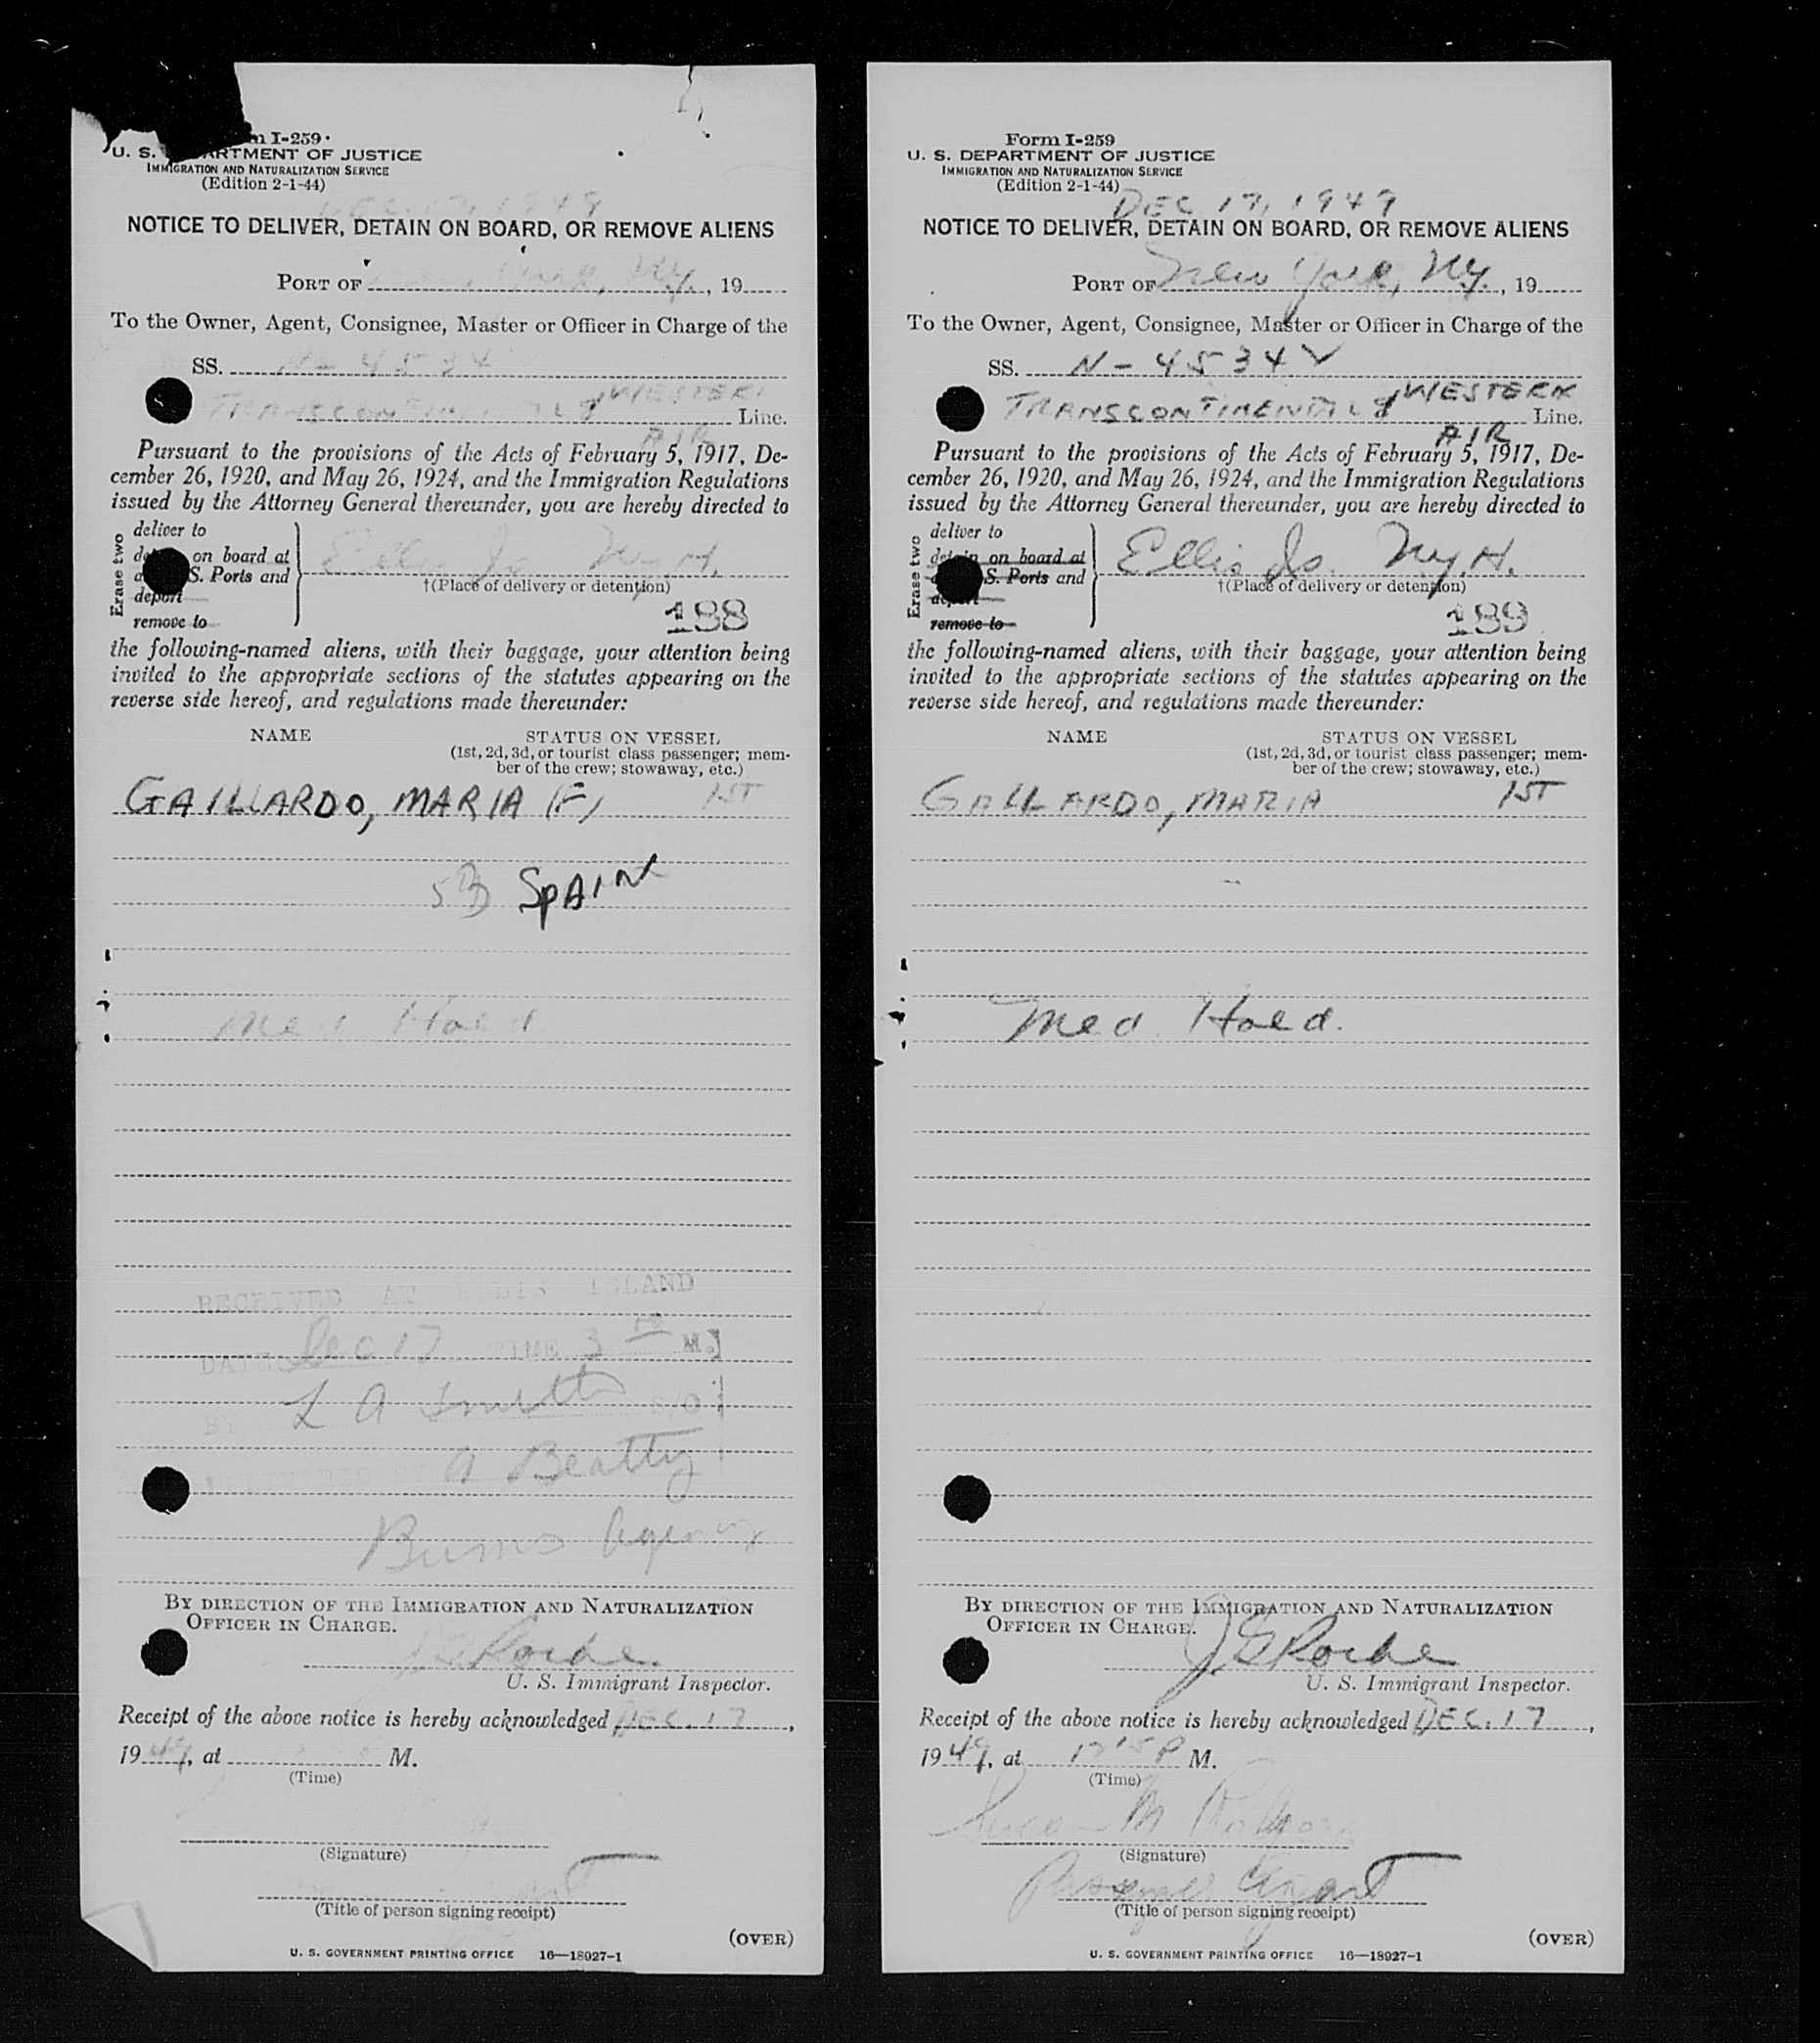 m I-259
U. S. DEPARTMENT OF JUSTICE
IMMIGRATION AND NATURALIZATION SERVICE
(Edition 2-1-44)
DEC 17, 1949
NOTICE TO DELIVER, DETAIN ON BOARD, OR REMOVE ALIENS
PORT OF New York, N.Y., 19
To the Owner, Agent, Consignee, Master or Officer in Charge of the
SS. N-4534
TRANSCONTINENTAL & WESTERN
Line.
AIR
Pursuant to the provisions of the Acts of February 5, 1917, De-
cember 26, 1920, and May 26, 1924, and the Immigration Regulations
issued by the Attorney General thereunder, you are hereby directed to
Erase two
deliver to
on board at
S. Ports and
deport
remove to
Ellis Is. N.Y.H.
†(Place of delivery or detention)
188
the following-named aliens, with their baggage, your attention being
invited to the appropriate sections of the statutes appearing on the
reverse side hereof, and regulations made thereunder:
NAME STATUS ON VESSEL
(1st, 2d, 3d, or tourist class passenger; mem-
ber of the crew; stowaway, etc.)
GAILLARDO, MARIA (F) 1ST
SPAIN
Med Hold
RECEIVED AT ELLIS ISLAND
DATE Dec 17 TIME 3 M.
BY L A Smith S/O
DELIVERED BY A Beatty
Burns Agency
BY DIRECTION OF THE IMMIGRATION AND NATURALIZATION
OFFICER IN CHARGE.
J G Roche
U. S. Immigrant Inspector.
Receipt of the above notice is hereby acknowledged DEC. 17,
1949, at M.
(Time)
(Signature)
(Title of person signing receipt)
(OVER)
U. S. GOVERNMENT PRINTING OFFICE 16—18927-1
Form I-259
U. S. DEPARTMENT OF JUSTICE
IMMIGRATION AND NATURALIZATION SERVICE
(Edition 2-1-44)
DEC 17, 1949
NOTICE TO DELIVER, DETAIN ON BOARD, OR REMOVE ALIENS
PORT OF New York, N.Y., 19
To the Owner, Agent, Consignee, Master or Officer in Charge of the
SS. N-4534V
TRANSCONTINENTAL & WESTERN
Line.
AIR
Pursuant to the provisions of the Acts of February 5, 1917, De-
cember 26, 1920, and May 26, 1924, and the Immigration Regulations
issued by the Attorney General thereunder, you are hereby directed to
Erase two
deliver to
detain on board at
S. Ports and
deport
remove to
Ellis Is. N.Y.H.
†(Place of delivery or detention)
189
the following-named aliens, with their baggage, your attention being
invited to the appropriate sections of the statutes appearing on the
reverse side hereof, and regulations made thereunder:
NAME STATUS ON VESSEL
(1st, 2d, 3d, or tourist class passenger; mem-
ber of the crew; stowaway, etc.)
GALLARDO, MARIA 1ST
Med Hold.
BY DIRECTION OF THE IMMIGRATION AND NATURALIZATION
OFFICER IN CHARGE.
J G Roche
U. S. Immigrant Inspector.
Receipt of the above notice is hereby acknowledged DEC. 17,
1949, at P M.
(Time)
(Signature)
(Title of person signing receipt)
(OVER)
U. S. GOVERNMENT PRINTING OFFICE 16—18927-1